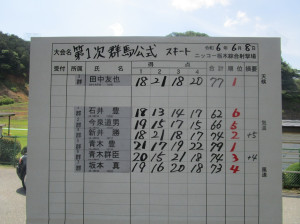 大会名 第1次 群馬公式 スキート 令和6年6月8日
ニッコー栃木綜合射撃場
受付 所属 氏名 得点 合計 順位 摘要
1 2 3 4
群 田中友也 18 21 18 20 77 1
石井 豊 18 13 14 17 62 6
今泉道男 19 15 17 15 66 5
新井 勝 18 21 18 17 74 2 +5
青木 登 21 17 19 22 79 1
青木群臣 20 15 21 18 74 3 +4
坂本 真 19 16 20 18 73 4